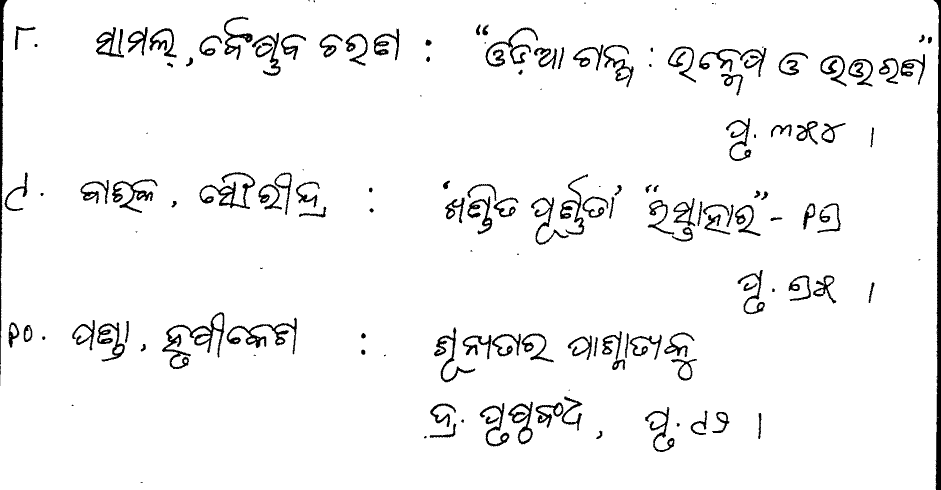 ୮. ସାମଲ, ବୈଷ୍ଣବ ଚରଣ : “ଓଡ଼ିଆ ଗଳ୍ପ : ଉନ୍ମେଷ ଓ ଉତ୍ତରଣ”
ପୃ. ୩୫୪ ।
୯. ବାରିକ, ସୌରୀନ୍ଦ୍ର : ‘ଖଣ୍ଡିତ ପୂର୍ଣ୍ଣତା’ “ଇସ୍ତାହାର”- ୧୭
ପୃ. ୭୫ ।
୧୦. ପଣ୍ଡା, ହୃଷୀକେଶ : ଶୂନ୍ୟତାର ପାଶ୍ଚାତ୍ୟକୁ
ଦ୍ର. ପୃଷ୍ଠବଂଧ, ପୃ. ୯୨ ।